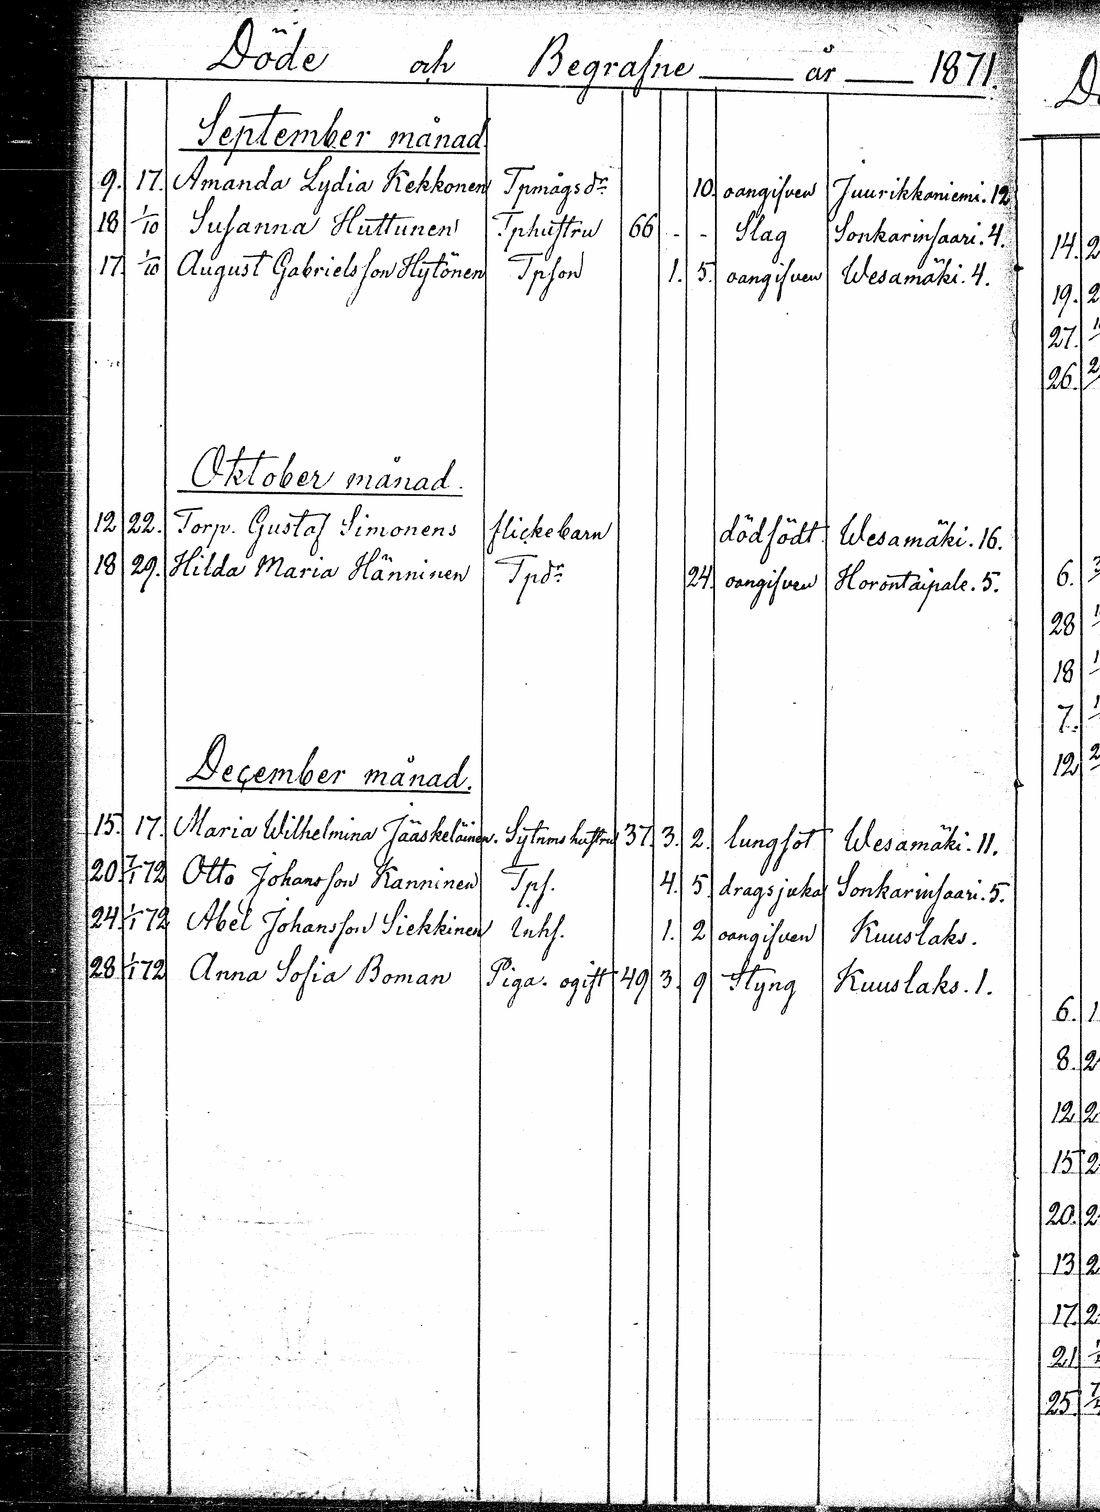 Döde och Begrafne år 1871.
September månad
9. 17. Amanda Lydia Kekkonen Tpmågsdr 10. oangifven Juurikkaniemi. 12
18 1/10 Susanna Huttunen Tphustru 66 - - Slag Sonkarinsaari. 4.
17. 1/10 August Gabrielsson Hytönen Tpson 1. 5. oangifven Wesamäki. 4.
Oktober månad.
12 22. Torp. Gustaf Simonens flickebarn dödfödt. Wesamäki. 16.
18 29. Hilda Maria Hänninen Tpdr 24. oangifven Horontaipale. 5.
December månad.
15. 17. Maria Wilhelmina Jääskeläinen. Sytnms hustru 37. 3. 2. lungsot Wesamäki. 11.
20. 7/1 72 Otto Johansson Kanninen Tps. 4. 5. dragsjuka Sonkarinsaari. 5.
24. 1/1 72 Abel Johansson Siekkinen Inhs. 1. 2 oangifven Kuuslaks.
28 1/1 72 Anna Sofia Boman Piga. ogift 49 3. 9 Styng Kuuslaks. 1.
14. 2
19. 2
27.
26. 2
6. 3
28 1
18 1
7. 1
12 2
6. 1
8. 2
12 2
15 2
20. 2
13 2
17. 2
21
25. 7